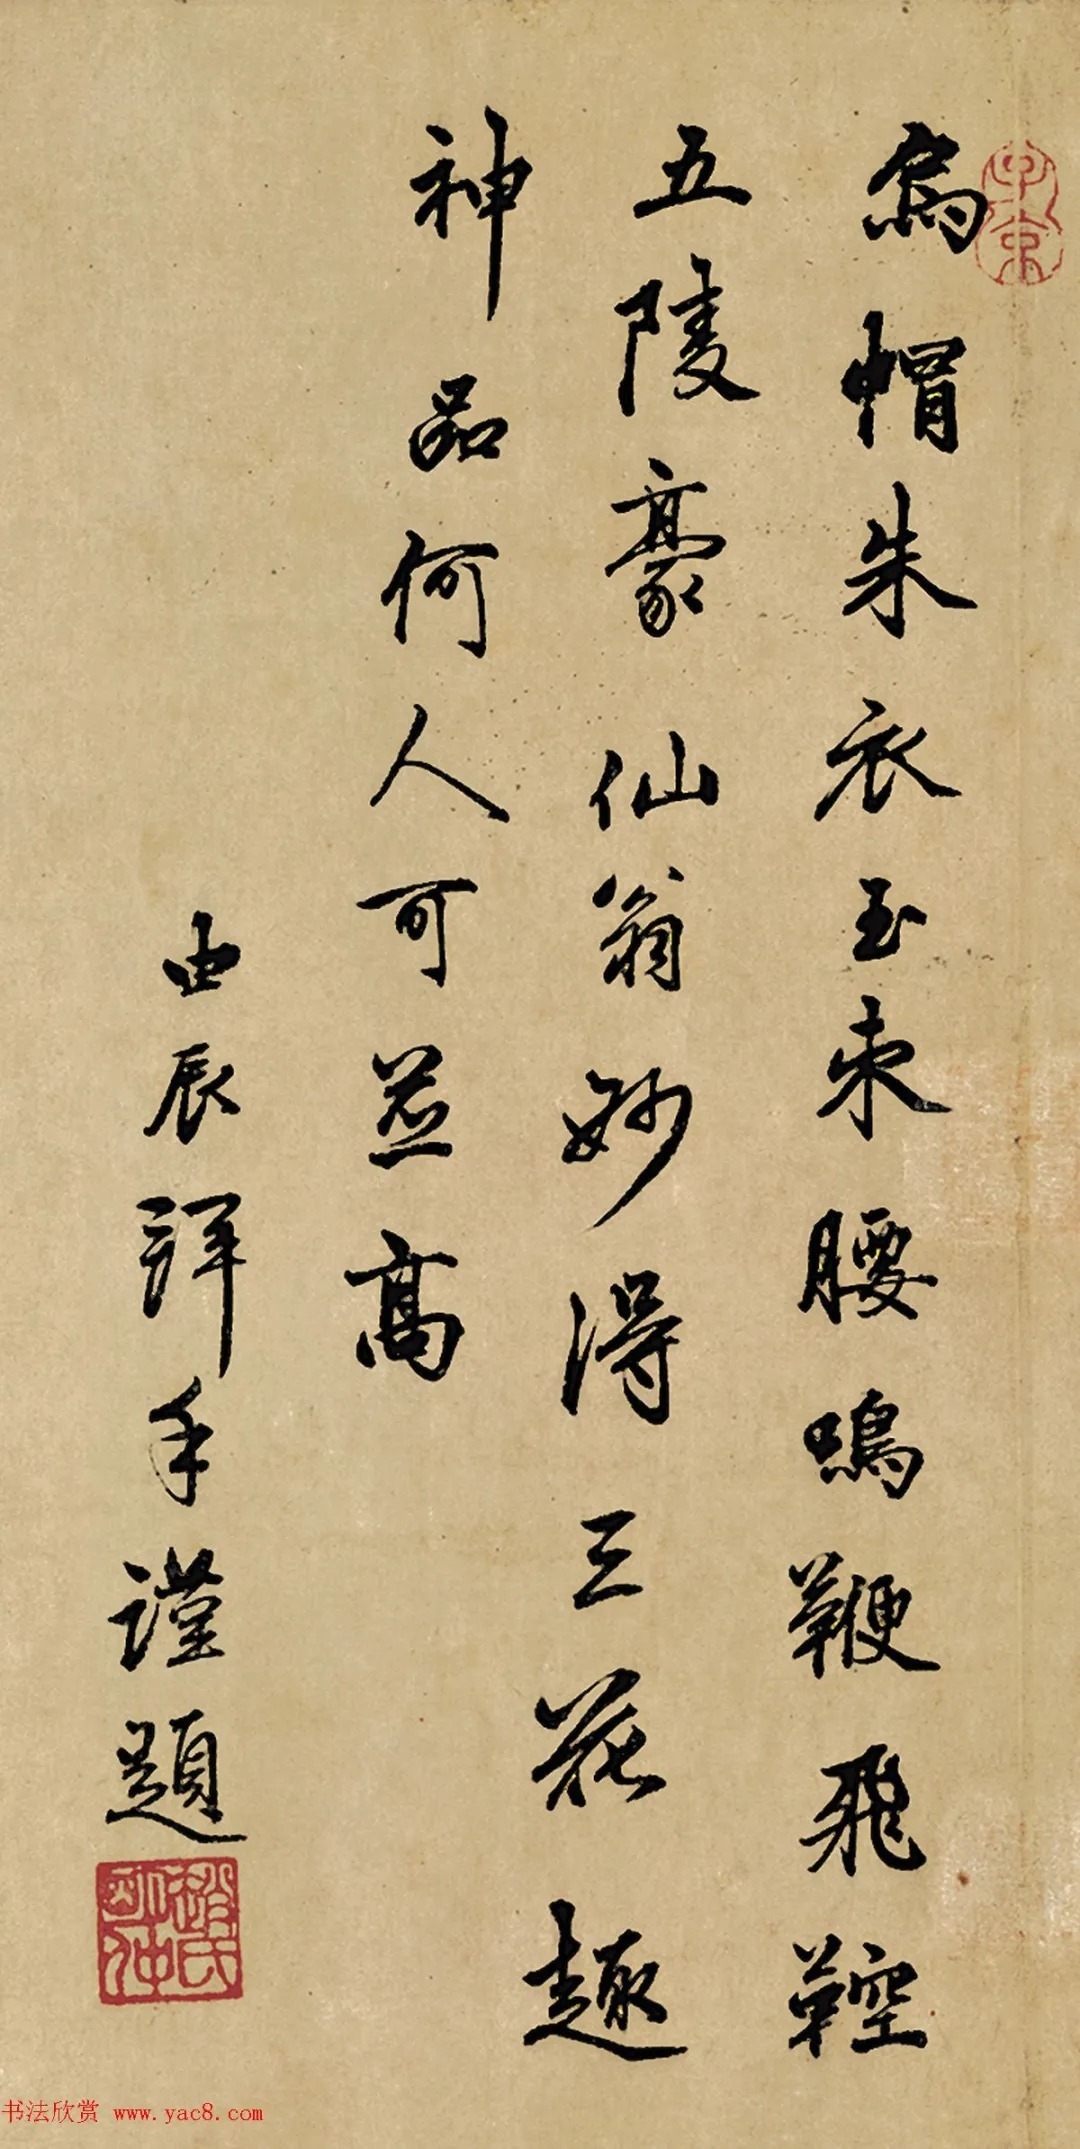 烏帽朱衣玉束腰鳴鞭飛鞚
五陵豪仙翁妙得三花趣
神品何人可並高
由辰拜手謹題
趙氏由仲
子京
书法欣赏 www.yac8.com